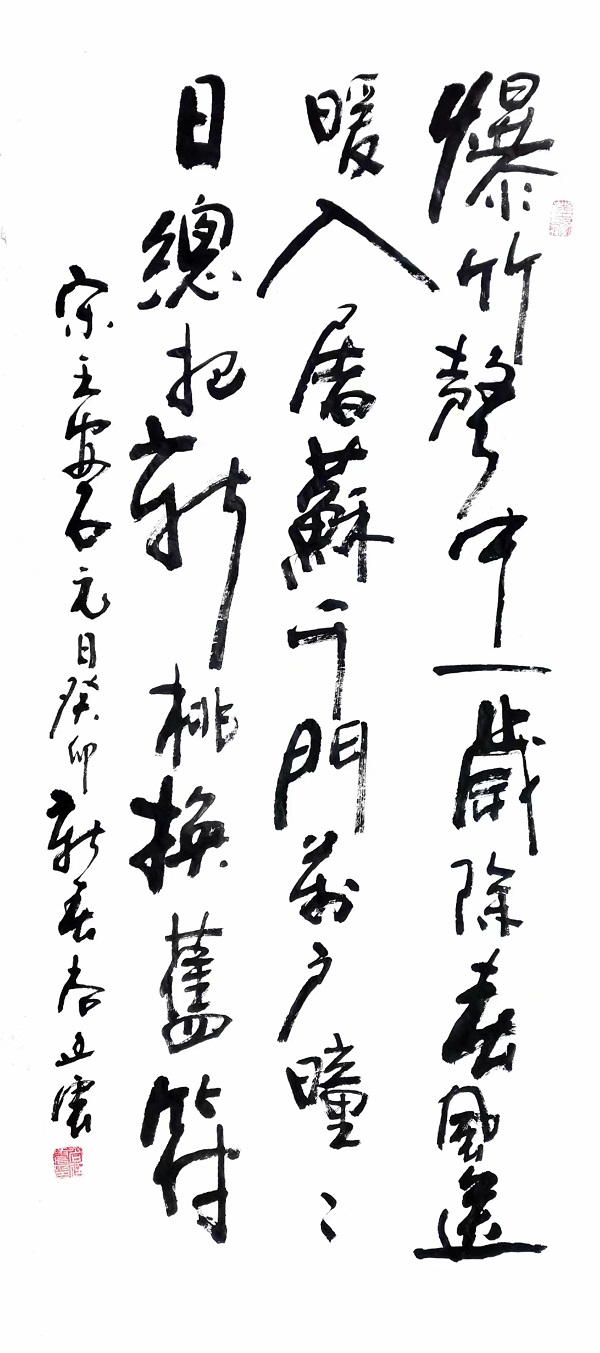 爆竹聲中一歲除春風送
暖入屠蘇千門萬戶曈〻
日總把新桃換舊符
宋王安石元日癸卯新春